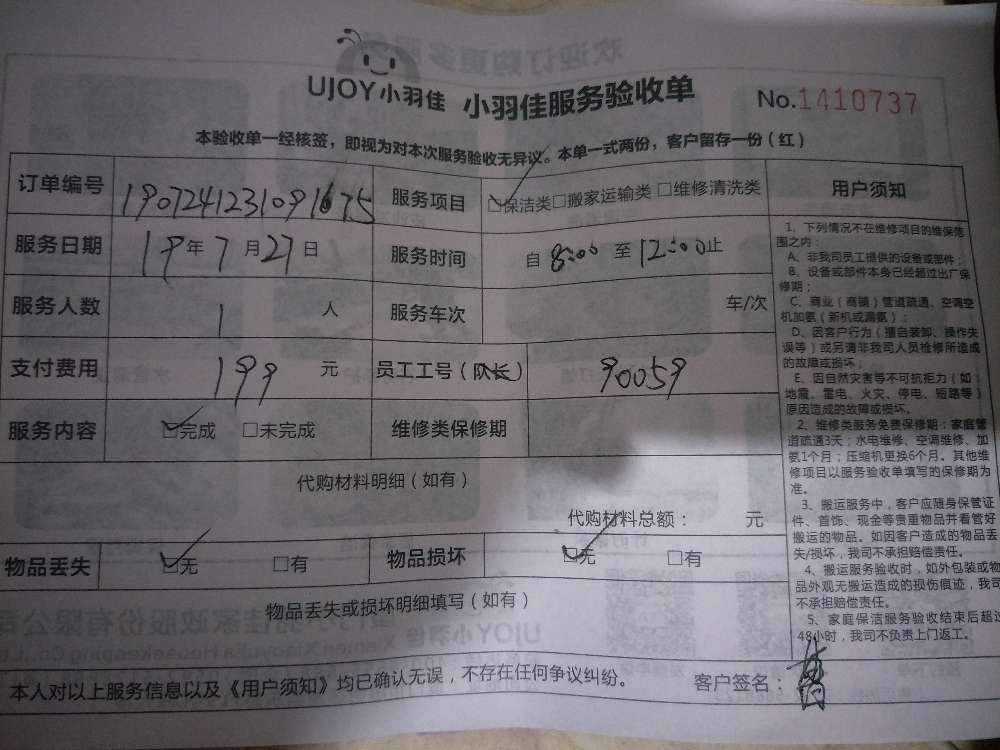 UJOY小羽佳 小羽佳服务验收单 No.1410737
本验收单一经核签，即视为对本次服务验收无异议。本单一式两份，客户留存一份（红）
订单编号 1907241231091675 服务项目 ☑保洁类□搬家运输类□维修清洗类
服务日期 19年7月27日 服务时间 自8:00至12:00止
服务人数 1 人 服务车次 车/次
支付费用 199 元 员工工号（队长） 90059
服务内容 ☑完成 □未完成 维修类保修期
代购材料明细（如有）
代购材料总额： 元
物品丢失 ☑无 □有 物品损坏 ☑无 □有
物品丢失或损坏明细填写（如有）
本人对以上服务信息以及《用户须知》均已确认无误，不存在任何争议纠纷。 客户签名：
用户须知
1、下列情况不在维修项目的维保范
围之内：
A、非我司员工提供的设备或部件；
B、设备或部件本身已经超过出厂保
修期；
C、商业（商铺）管道疏通、空调空
机加氨（新机或漏氨）；
D、因客户行为（擅自装卸、操作失
误等）或另请非我司人员检修所造成
的故障或损坏；
E、因自然灾害等不可抗拒力（如：
地震、雷电、火灾、停电、短路等）
原因造成的故障或损坏。
2、维修类服务免费保修期：家庭管
道疏通3天；水电维修、空调维修、加
氨1个月；压缩机更换6个月。其他维
修项目以服务验收单填写的保修期为
准。
3、搬运服务中，客户应随身保管证
件、首饰、现金等贵重物品并看管好
搬运的物品。如因客户造成的物品丢
失/损坏，我司不承担赔偿责任。
4、搬运服务验收时，如外包装或物
品外观无搬运造成的损伤痕迹，我司
不承担赔偿责任。
5、家庭保洁服务验收结束后超过
48小时，我司不负责上门返工。